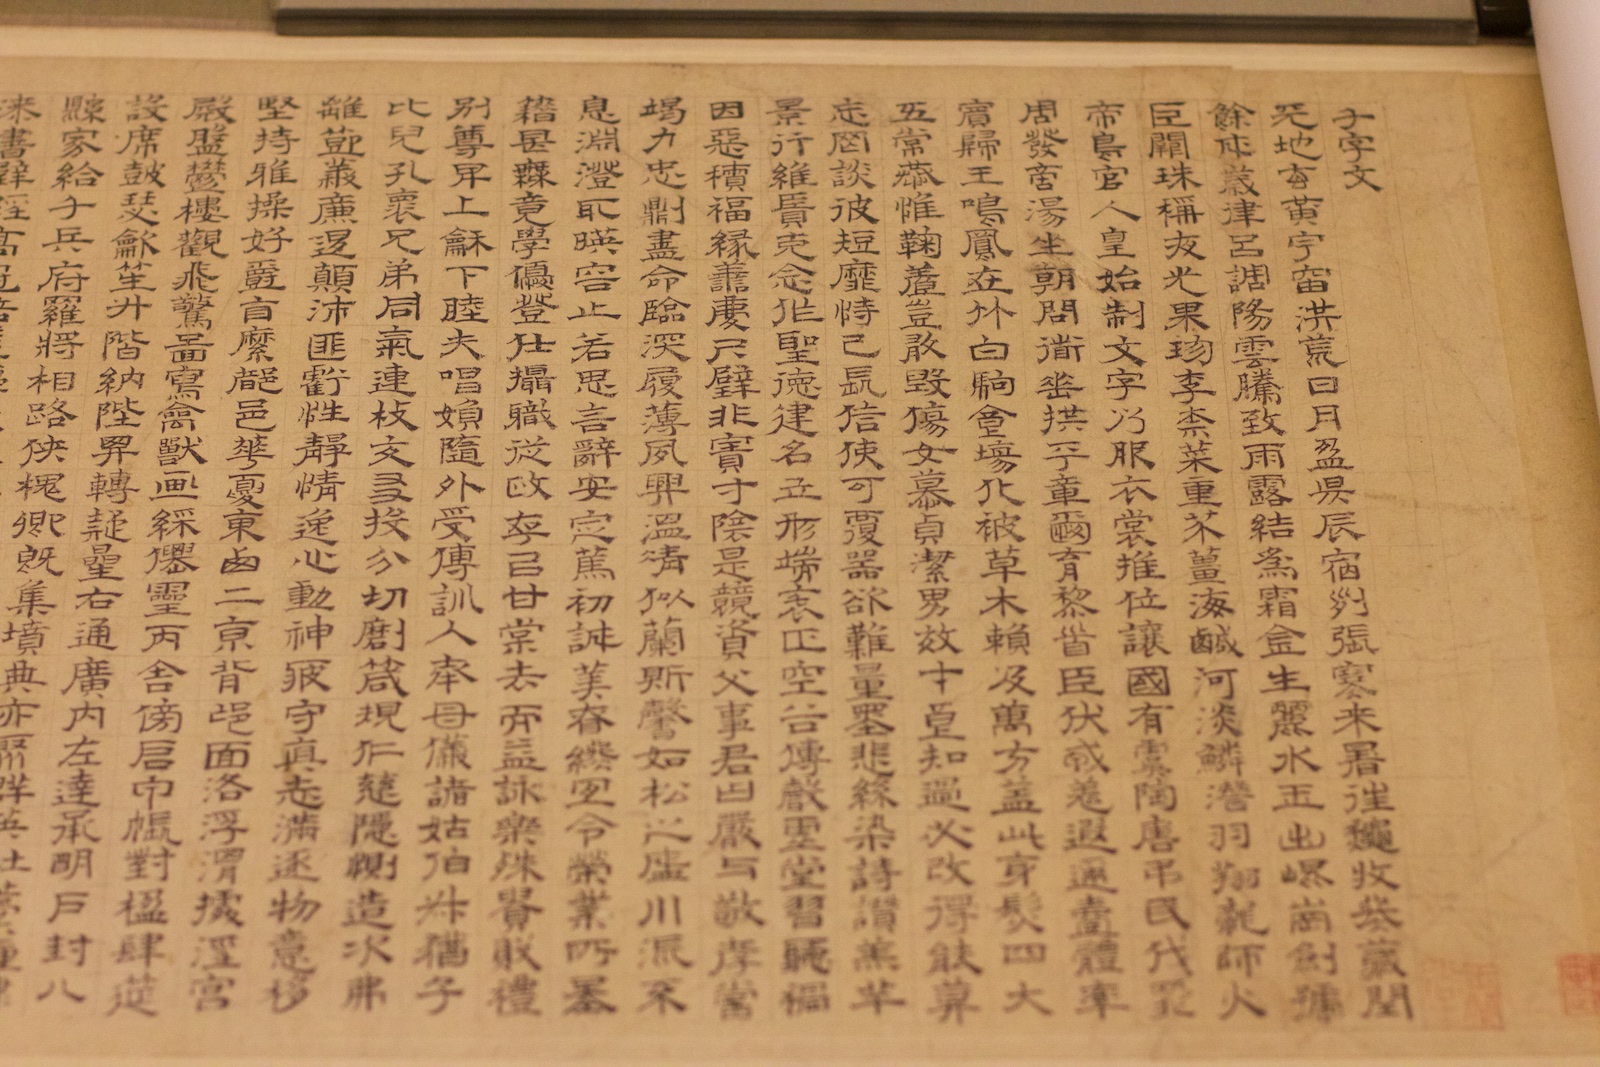 千字文
天地玄黃宇宙洪荒日月盈昃辰宿列張寒来暑往穐收冬藏閏
餘成歲律呂調陽雲騰致雨露結為霜金生麗水玉出崐崗劍號
巨闕珠稱夜光果珍李柰菜重芥薑海鹹河淡鱗潛羽翔龍師火
帝鳥官人皇始制文字乃服衣裳推位讓國有虞陶唐弔民伐罪
周發商湯坐朝問道垂拱平章愛育黎首臣伏戎羌遐邇壹體率
賓歸王鳴鳳在竹白駒食場化被草木賴及萬方蓋此身髮四大
五常恭惟鞠養豈敢毀傷女慕貞潔男效才良知過必改得能莫
忘罔談彼短靡恃己長信使可覆器欲難量墨悲絲染詩讚羔羊
景行維賢克念作聖德建名立形端表正空谷傳聲虛堂習聽禍
因惡積福緣善慶尺璧非寶寸陰是競資父事君曰嚴与敬孝當
竭力忠則盡命臨深履薄夙興溫凊似蘭斯馨如松之盛川流不
息淵澄取暎容止若思言辭安定篤初誠美慎終宜令榮業所基
籍甚無竟學優登仕攝職從政存以甘棠去而益詠樂殊貴賤禮
別尊卑上龢下睦夫唱婦隨外受傅訓入奉母儀諸姑伯叔猶子
比兒孔懷兄弟同氣連枝交友投分切磨箴規仁慈隱惻造次弗
離節義廉退顛沛匪虧性靜情逸心動神疲守真志滿逐物意移
堅持雅操好爵自縻都邑華夏東西二京背邙面洛浮渭據涇宮
殿盤鬱樓觀飛驚圖寫禽獸画綵仙靈丙舍傍启甲帳對楹肆筵
設席鼓瑟龡笙升階納陛弁轉疑星右通廣内左達承明戶封八
縣家給千兵府羅將相路俠槐卿既集墳典亦聚群英杜稾鍾隸
漆書壁經高冠陪